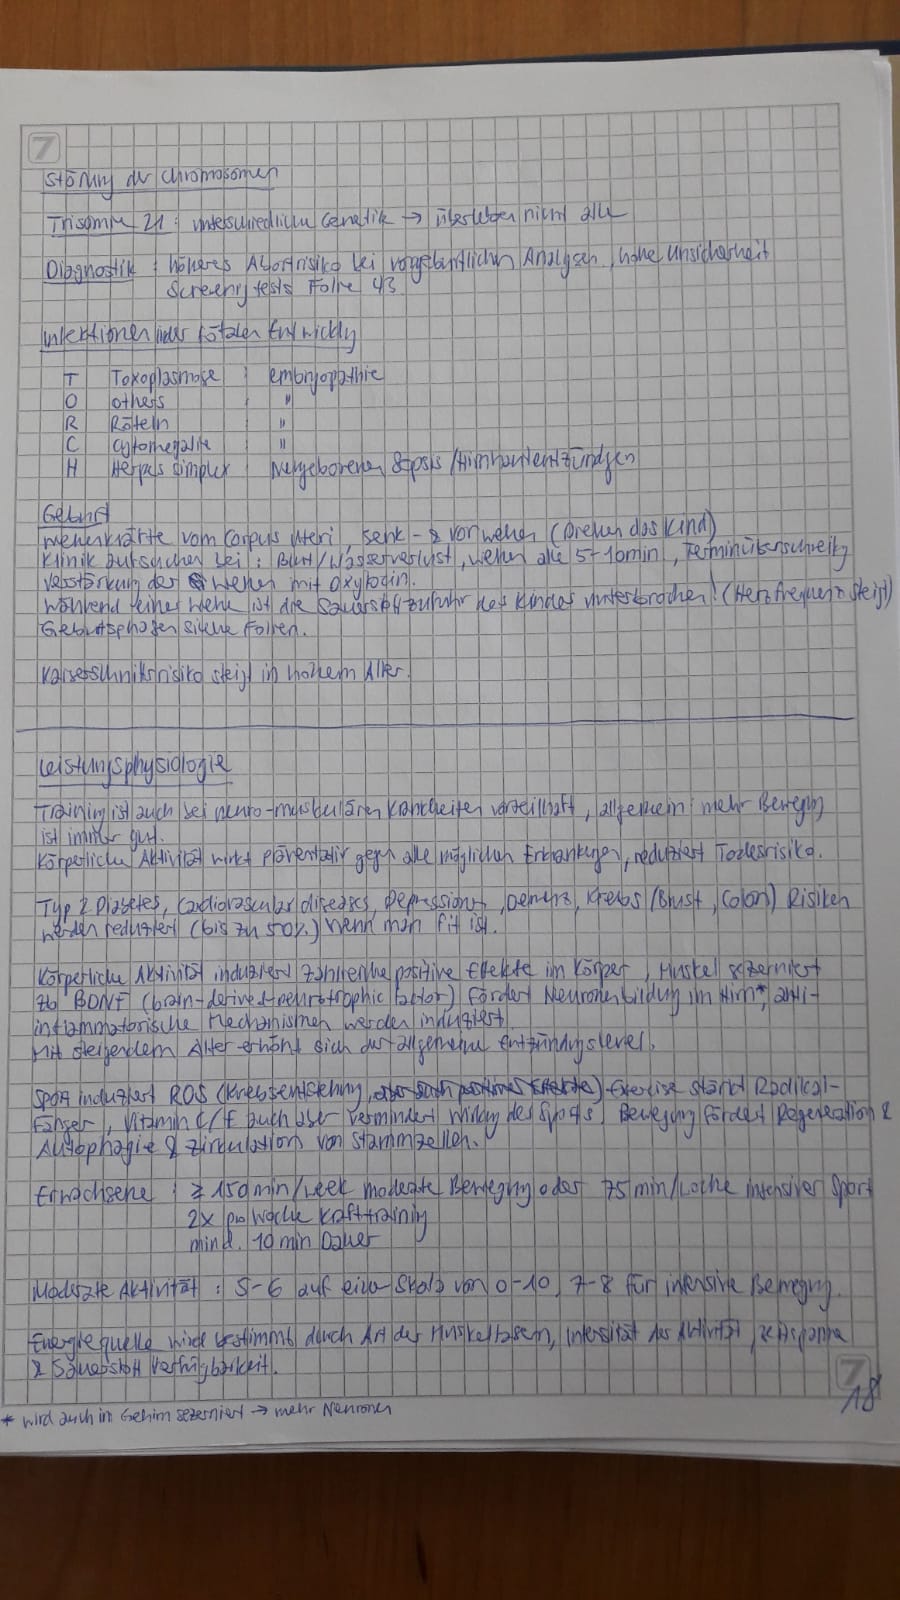 7
Störung der Chromosomen
Trisomie 21: unterschiedliche Genetik → überleben nicht alle
Diagnostik: höheres Abortrisiko bei vorgeburtlichen Analysen, hohe Unsicherheit
Screeningtests Folie 43
Infektionen in der fötalen Entwicklg
T Toxoplasmose : embryopathie
O others : "
R Röteln "
C Cytomegalie : "
H Herpes simplex Neugeborenen Sepsis / Hirnhautentzündgen
Geburt
Wehenkräfte vom Corpus uteri, Senk- & Vorwehen (Drehen das Kind)
Klinik aufsuchen bei: Blut/Wasserverlust, Wehen alle 5-10min, Terminüberschreitg
Verstärkung der Wehen mit Oxytocin.
Während einer Wehe ist die Sauerstoffzufuhr des Kindes unterbrochen! (Herzfrequenz steigt)
Geburtsphasen siehe Folien.
Kaiserschnittrisiko steigt in hohem Alter.
Leistungsphysiologie
Training ist auch bei neuro-muskulären Krankheiten vorteilhaft, allgemein: mehr Bewegng
ist immer gut.
Körperliche Aktivität wirkt präventativ gegen alle möglichen Erkrankungen, reduziert Todesrisiko.
Typ 2 Diabetes, Cardiovascular diseases, Depressionen, Demenz, Krebs (Brust, Colon) Risiken
werden reduziert (bis zu 50%) wenn man fit ist.
Körperliche Aktivität induziert zahlreiche positive Effekte im Körper, Muskel sezerniert
zB BDNF (brain-derived-neurotrophic factor) fördert Neuronenbildung im Hirn*, anti-
inflammatorische Mechanismen werden induziert
Mit steigendem Alter erhöht sich der allgemeine Entzündungslevel.
Sport induziert ROS (Krebsentstehung, aber auch positive Effekte) Exercise stärkt Radikal-
fänger, Vitamin C/E auch aber vermindert Wirkung des Sports, Bewegung fördert Regeneration &
Autophagie & Zirkulation von Stammzellen.
Erwachsene : ≥ 150min/Week moderate Bewegng oder 75min/Woche intensiver Sport
2x pro Woche Krafttraining
mind. 10min Dauer
Moderate Aktivität : 5-6 auf einer Skala von 0-10, 7-8 für intensive Bewegng.
Energiequelle wird bestimmt durch Art der Muskelfasern, Intensität der Aktivität, Zeitspanne
& Sauerstoff Verfügbarkeit.
7
18
* wird auch in Gehirn sezerniert → mehr Neuronen